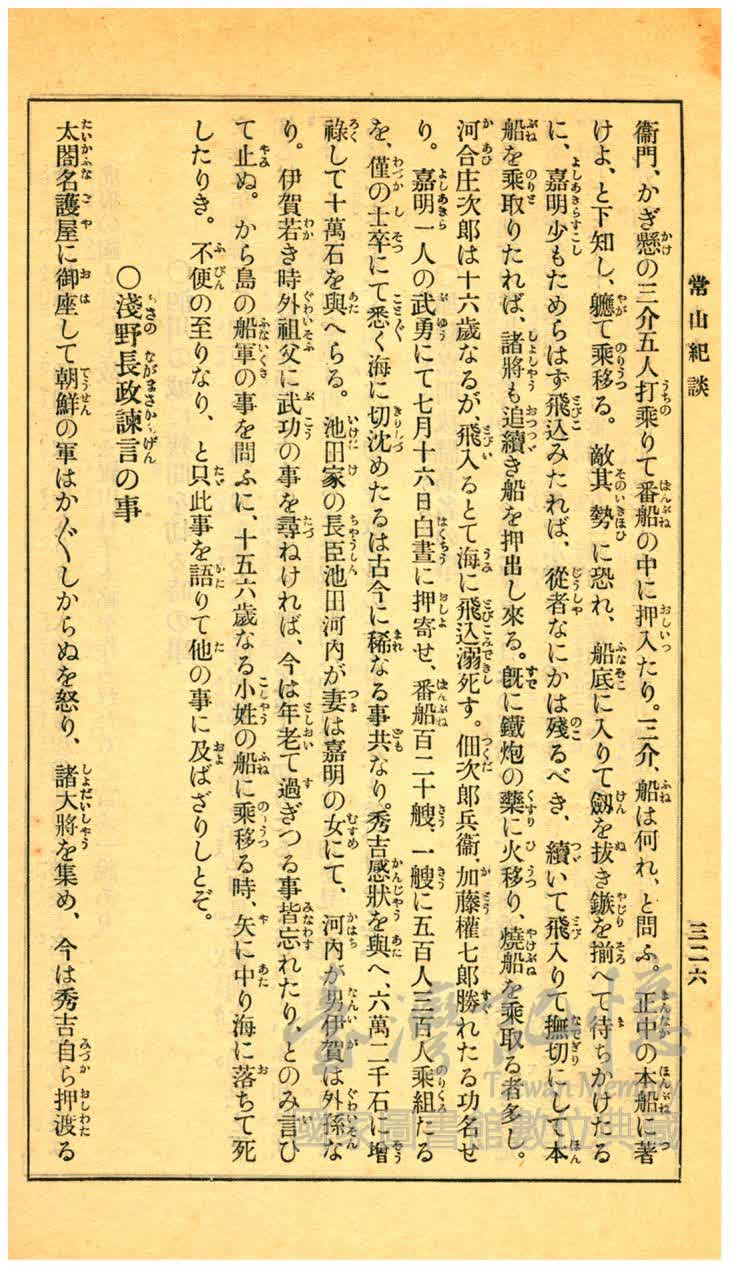 常山紀談
三二六
衞門、かぎ懸の三介五人打乘りて番船の中に押入たり。三介、船は何れ、と問ふ。正中の本船に著
けよ、と下知し、軈て乘移る。敵其勢に恐れ、船底に入りて劔を拔き鏃を揃へて待ちかけたる
に、嘉明少もためらはず飛込みたれば、從者なにかは殘るべき、續いて飛入りて撫切にして本
船を乘取りたれば、諸將も追續き船を押出し來る。旣に鐵炮の藥に火移り、燒船を乘取る者多し。
河合庄次郎は十六歲なるが、飛入るとて海に飛込溺死す。佃次郎兵衞、加藤權七郎勝れたる功名せ
り。嘉明一人の武勇にて七月十六日白晝に押寄せ、番船百二十艘、一艘に五百人三百人乘組たる
を、僅の士卒にて悉く海に切沈めたるは古今に稀なる事共なり。秀吉感狀を與へ、六萬二千石に增
祿して十萬石を與へらる。池田家の長臣池田河內が妻は嘉明の女にて、河內が男伊賀は外孫な
り。伊賀若き時外祖父に武功の事を尋ねければ、今は年老て過ぎつる事皆忘れたり、とのみ言ひ
て止ぬ。から島の船軍の事を問ふに、十五六歲なる小姓の船に乘移る時、矢に中り海に落ちて死
したりき。不便の至りなり、と只此事を語りて他の事に及ばざりしとぞ。
○淺野長政諫言の事
太閤名護屋に御座して朝鮮の軍はか〴〵しからぬを怒り、諸大將を集め、今は秀吉自ら押渡る
臺灣記憶
Taiwan Memory
國家圖書館數位典藏